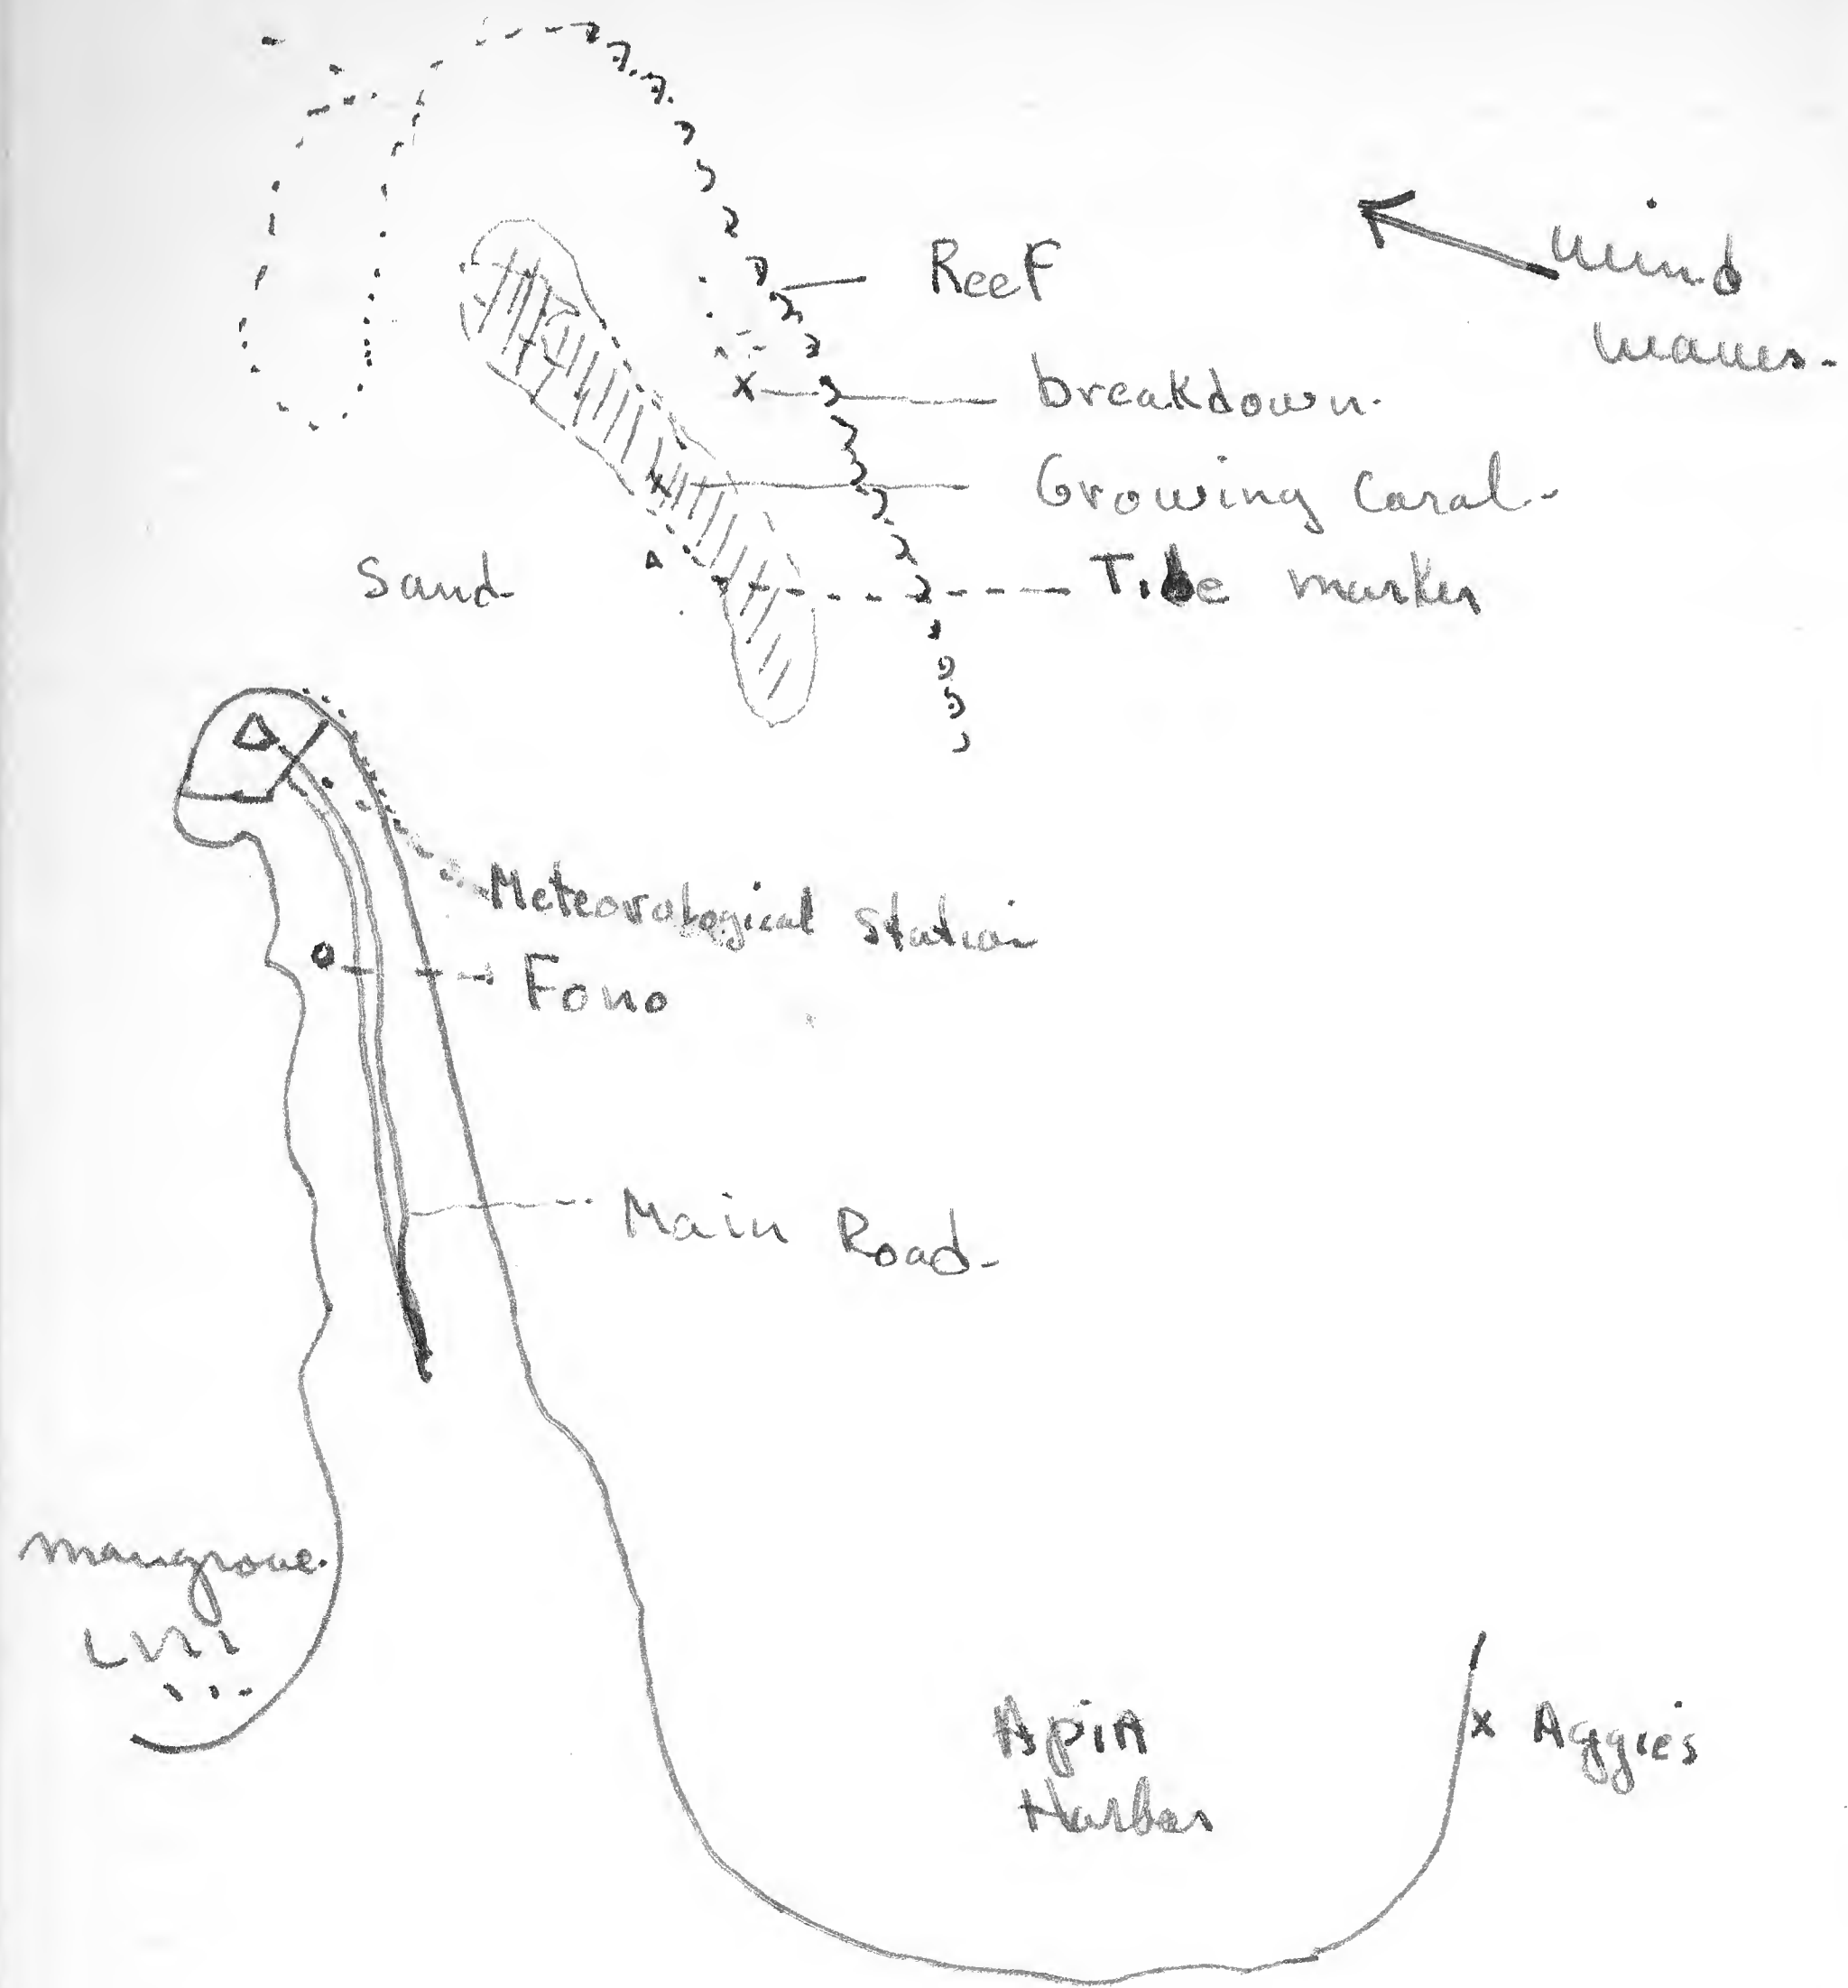 Reef
wind
waves.
breakdown.
Growing Coral
Sand
Tide marker
Meteorological Station
Fono
Main Road
mangrove
Apia
Harbor
x Aggies